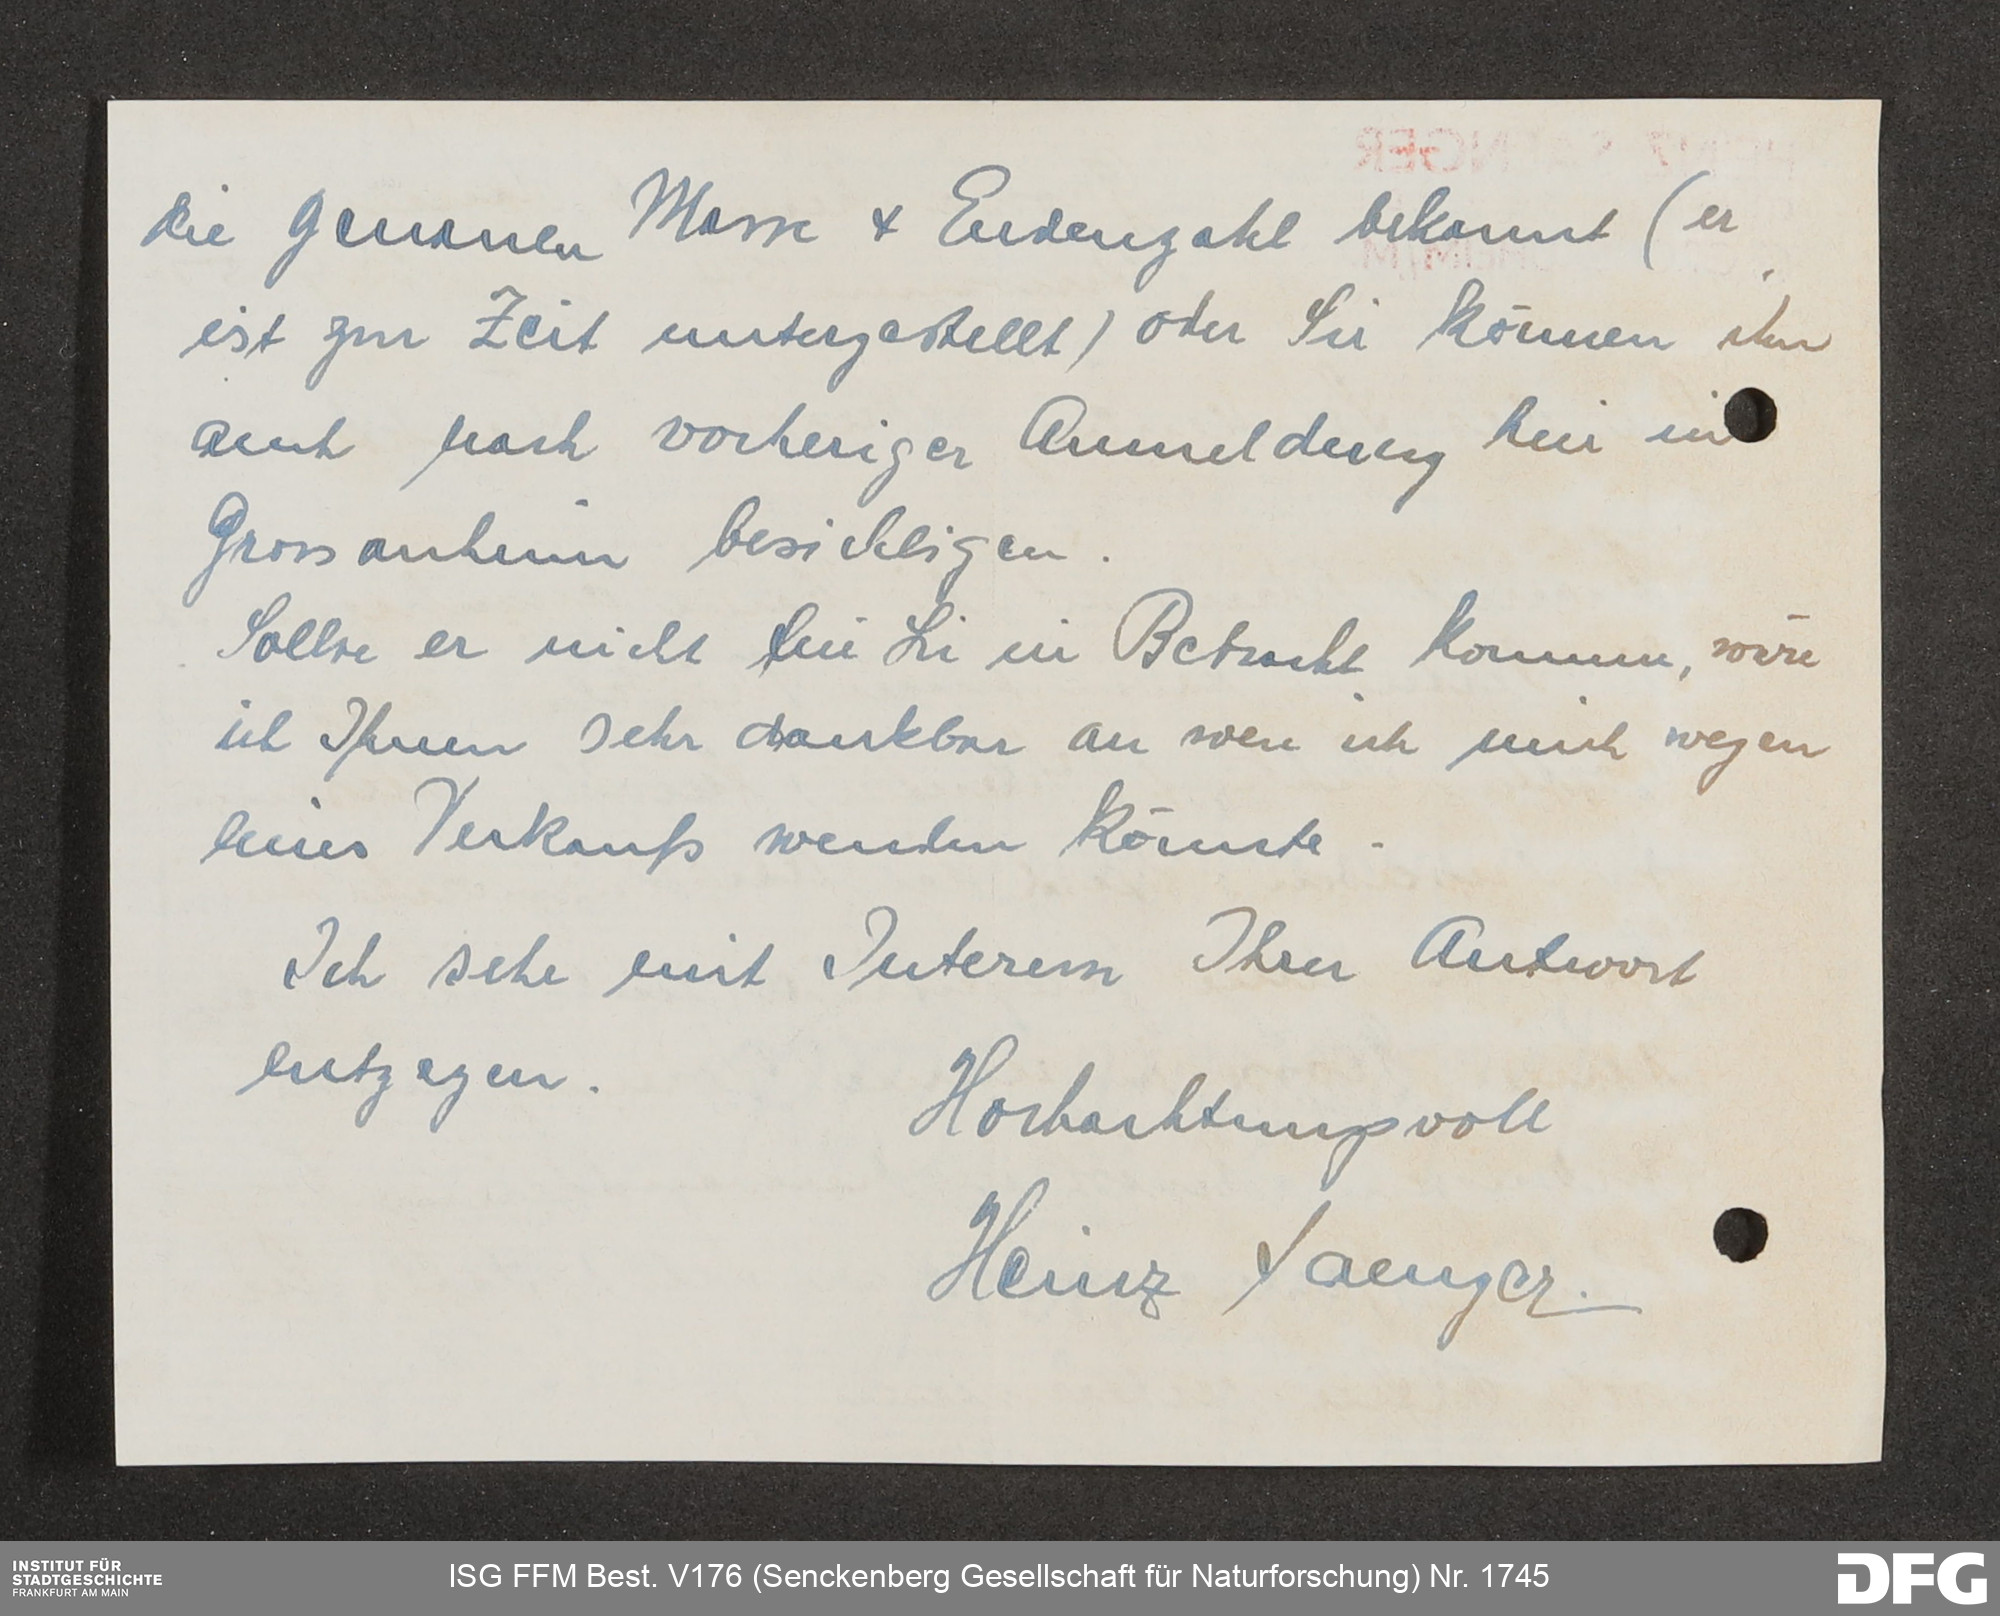 die genauen Masse & Endenzahl bekannt (er
ist zur Zeit untergestellt) oder Sie können ihn
auch nach vorheriger Anmeldung hier in
Grossauheim besichtigen.
Sollte er nicht für Sie in Betracht kommen, wäre
ich Ihnen sehr dankbar an wen ich mich wegen
eines Verkaufs wenden könnte.
Ich sehe mit Interesse Ihrer Antwort
entgegen.
Hochachtungsvoll
Heinz Saenger.
INSTITUT FÜR
STADTGESCHICHTE
FRANKFURT AM MAIN
ISG FFM Best. V176 (Senckenberg Gesellschaft für Naturforschung) Nr. 1745
DFG